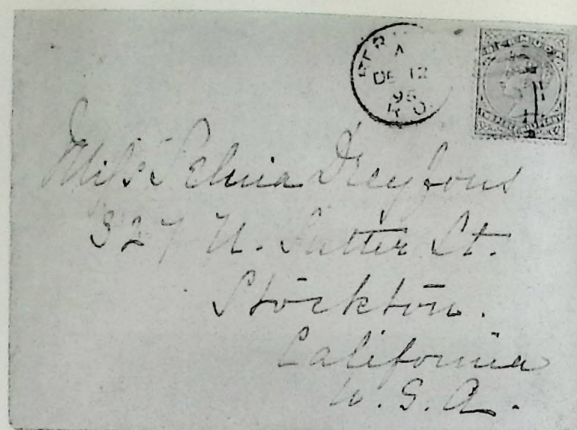 A
DE 12
95
Miss Selma Dreyfous
327 N. Sutter St.
Stockton.
California
U. S. A.